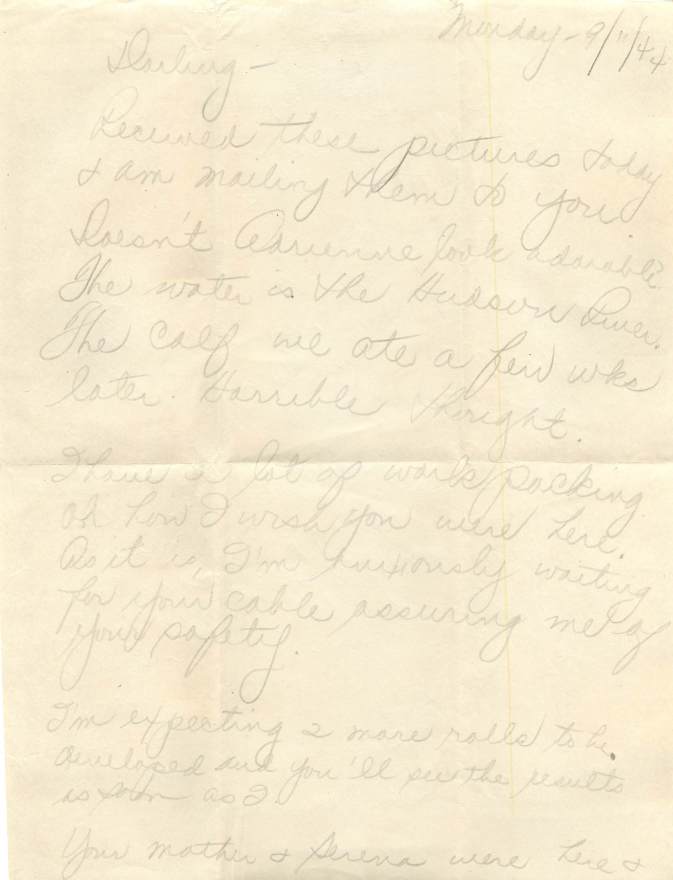 Monday - 9/11/44
Darling -
Received these pictures today
& am mailing them to you.
Doesn't Adrienne look adorable?
The water is the Hudson River.
The calf we ate a few wks
later. Horrible thought.
I have a lot of work packing
oh how I wish you were here.
As it is, I'm anxiously waiting
for your cable assuring me of
your safety.
I'm expecting 2 more rolls to be
developed and you'll see the results
as soon as I.
Your mother & Serena were here &